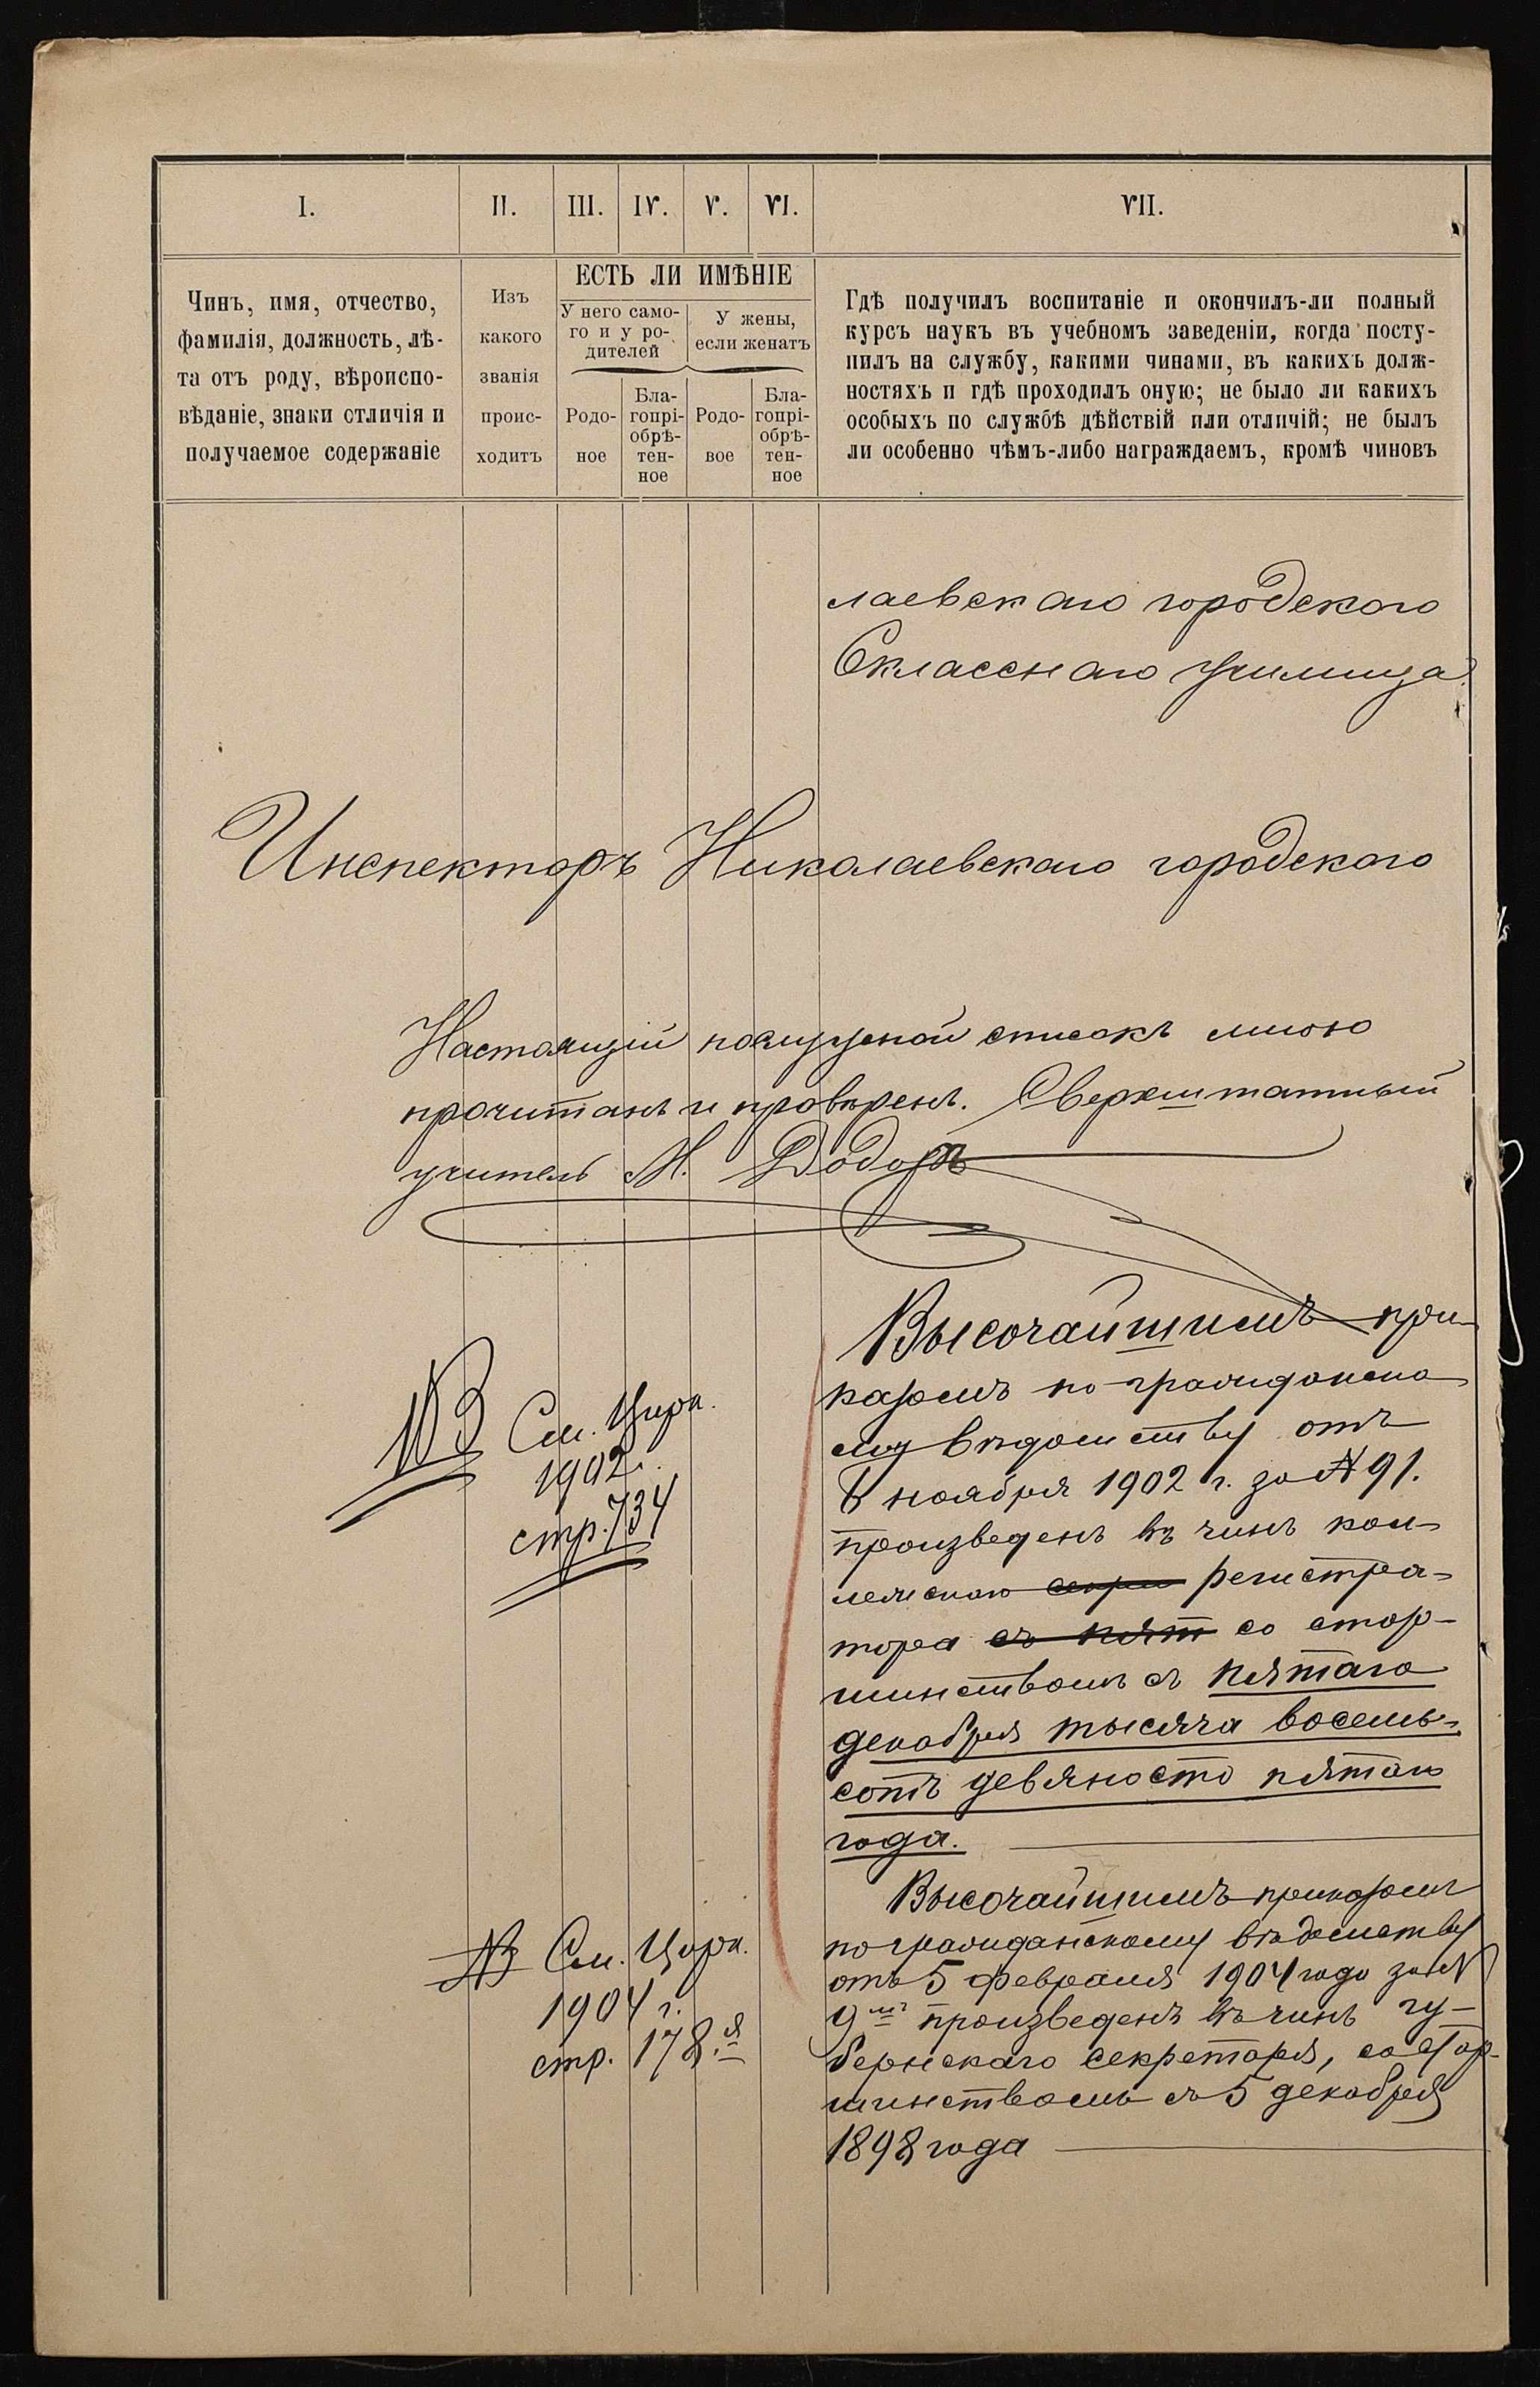 I.
II.
III.
IV.
V.
VI.
VII.
Чинъ, имя, отчество,
фамилія, должность, лѣ-
та отъ роду, вѣроиспо-
вѣданіе, знаки отличія и
получаемое содержаніе
Изъ
какого
званія
проис-
ходитъ
ЕСТЬ ЛИ ИМѢНІЕ
У него само-
го и у ро-
дителей
У жены,
если женатъ
Родо-
ное
Бла-
гопрі-
обрѣ-
тен-
ное
Родо-
вое
Бла-
гопрі-
обрѣ-
тен-
ное
Гдѣ получилъ воспитаніе и окончилъ-ли полный
курсъ наукъ въ учебномъ заведеніи, когда посту-
пилъ на службу, какими чинами, въ какихъ долж-
ностяхъ и гдѣ проходилъ оную; не было ли какихъ
особыхъ по службѣ дѣйствій или отличій; не былъ
ли особенно чѣмъ-либо награждаемъ, кромѣ чиновъ
лаевскаго городского
6классного училища.
Инспекторъ Николаевскаго городского
Настоящій послужной списокъ мною
прочитанъ и провѣренъ. Сверхштатный
учитель М.
Высочайшимъ при-
казомъ по гражданско-
му вѣдомству отъ
6 ноября 1902 г. за № 91.
произведенъ въ чинъ кол-
лежскаго секре регистра-
тора съ пят со стар-
шинствомъ съ пятаго
декабря тысяча восемь-
сотъ девяносто пятаго
года.
NB См. Цирк.
1902 г.
стр. 734
Высочайшимъ приказомъ
по гражданскому вѣдомству
отъ 5 февраля 1904 года за №
9мъ произведенъ въ чинъ гу-
бернскаго секретаря, со стар-
шинствомъ съ 5 декабря
1898 года
NB См. Цирк.
1904 г.
стр. 178.я